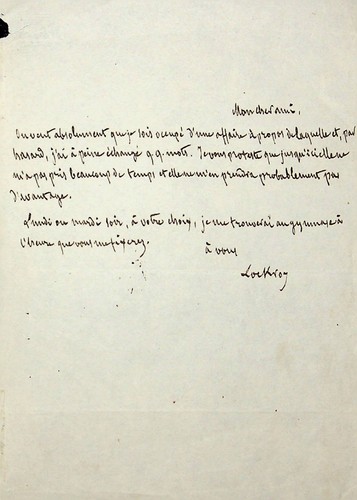 Mon cher ami,
On veut absolument que je sois occupé d'une affaire à propos de laquelle et, par
hasard, j'ai à peine échangé q.q. mots. Je vous proteste que jusqu'ici elle ne
m'a pas pris beaucoup de temps et elle ne m'en prendra probablement pas
d'avantage.
Lundi ou mardi soir, à votre choix, je me trouverai au gymnase à
l'heure que vous me fixerez.
à vous
Lockroy